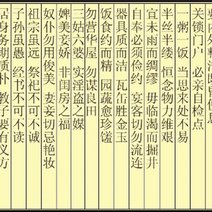 关锁门户 必亲自检点
一粥一饭 当思来处不易
半丝半缕 恒念物力维艰
宜未雨而绸缪 毋临渴而掘井
自奉必须俭约 宴客切勿流连
器具质而洁 瓦缶胜金玉
饭食约而精 园蔬愈珍馐
勿营华屋 勿谋良田
三姑六婆 实淫盗之媒
婢美妾娇 非闺房之福
奴仆勿用俊美 妻妾切忌艳妆
祖宗虽远 祭祀不可不诚
子孙虽愚 经书不可不读
身务期质朴 教子要有义方